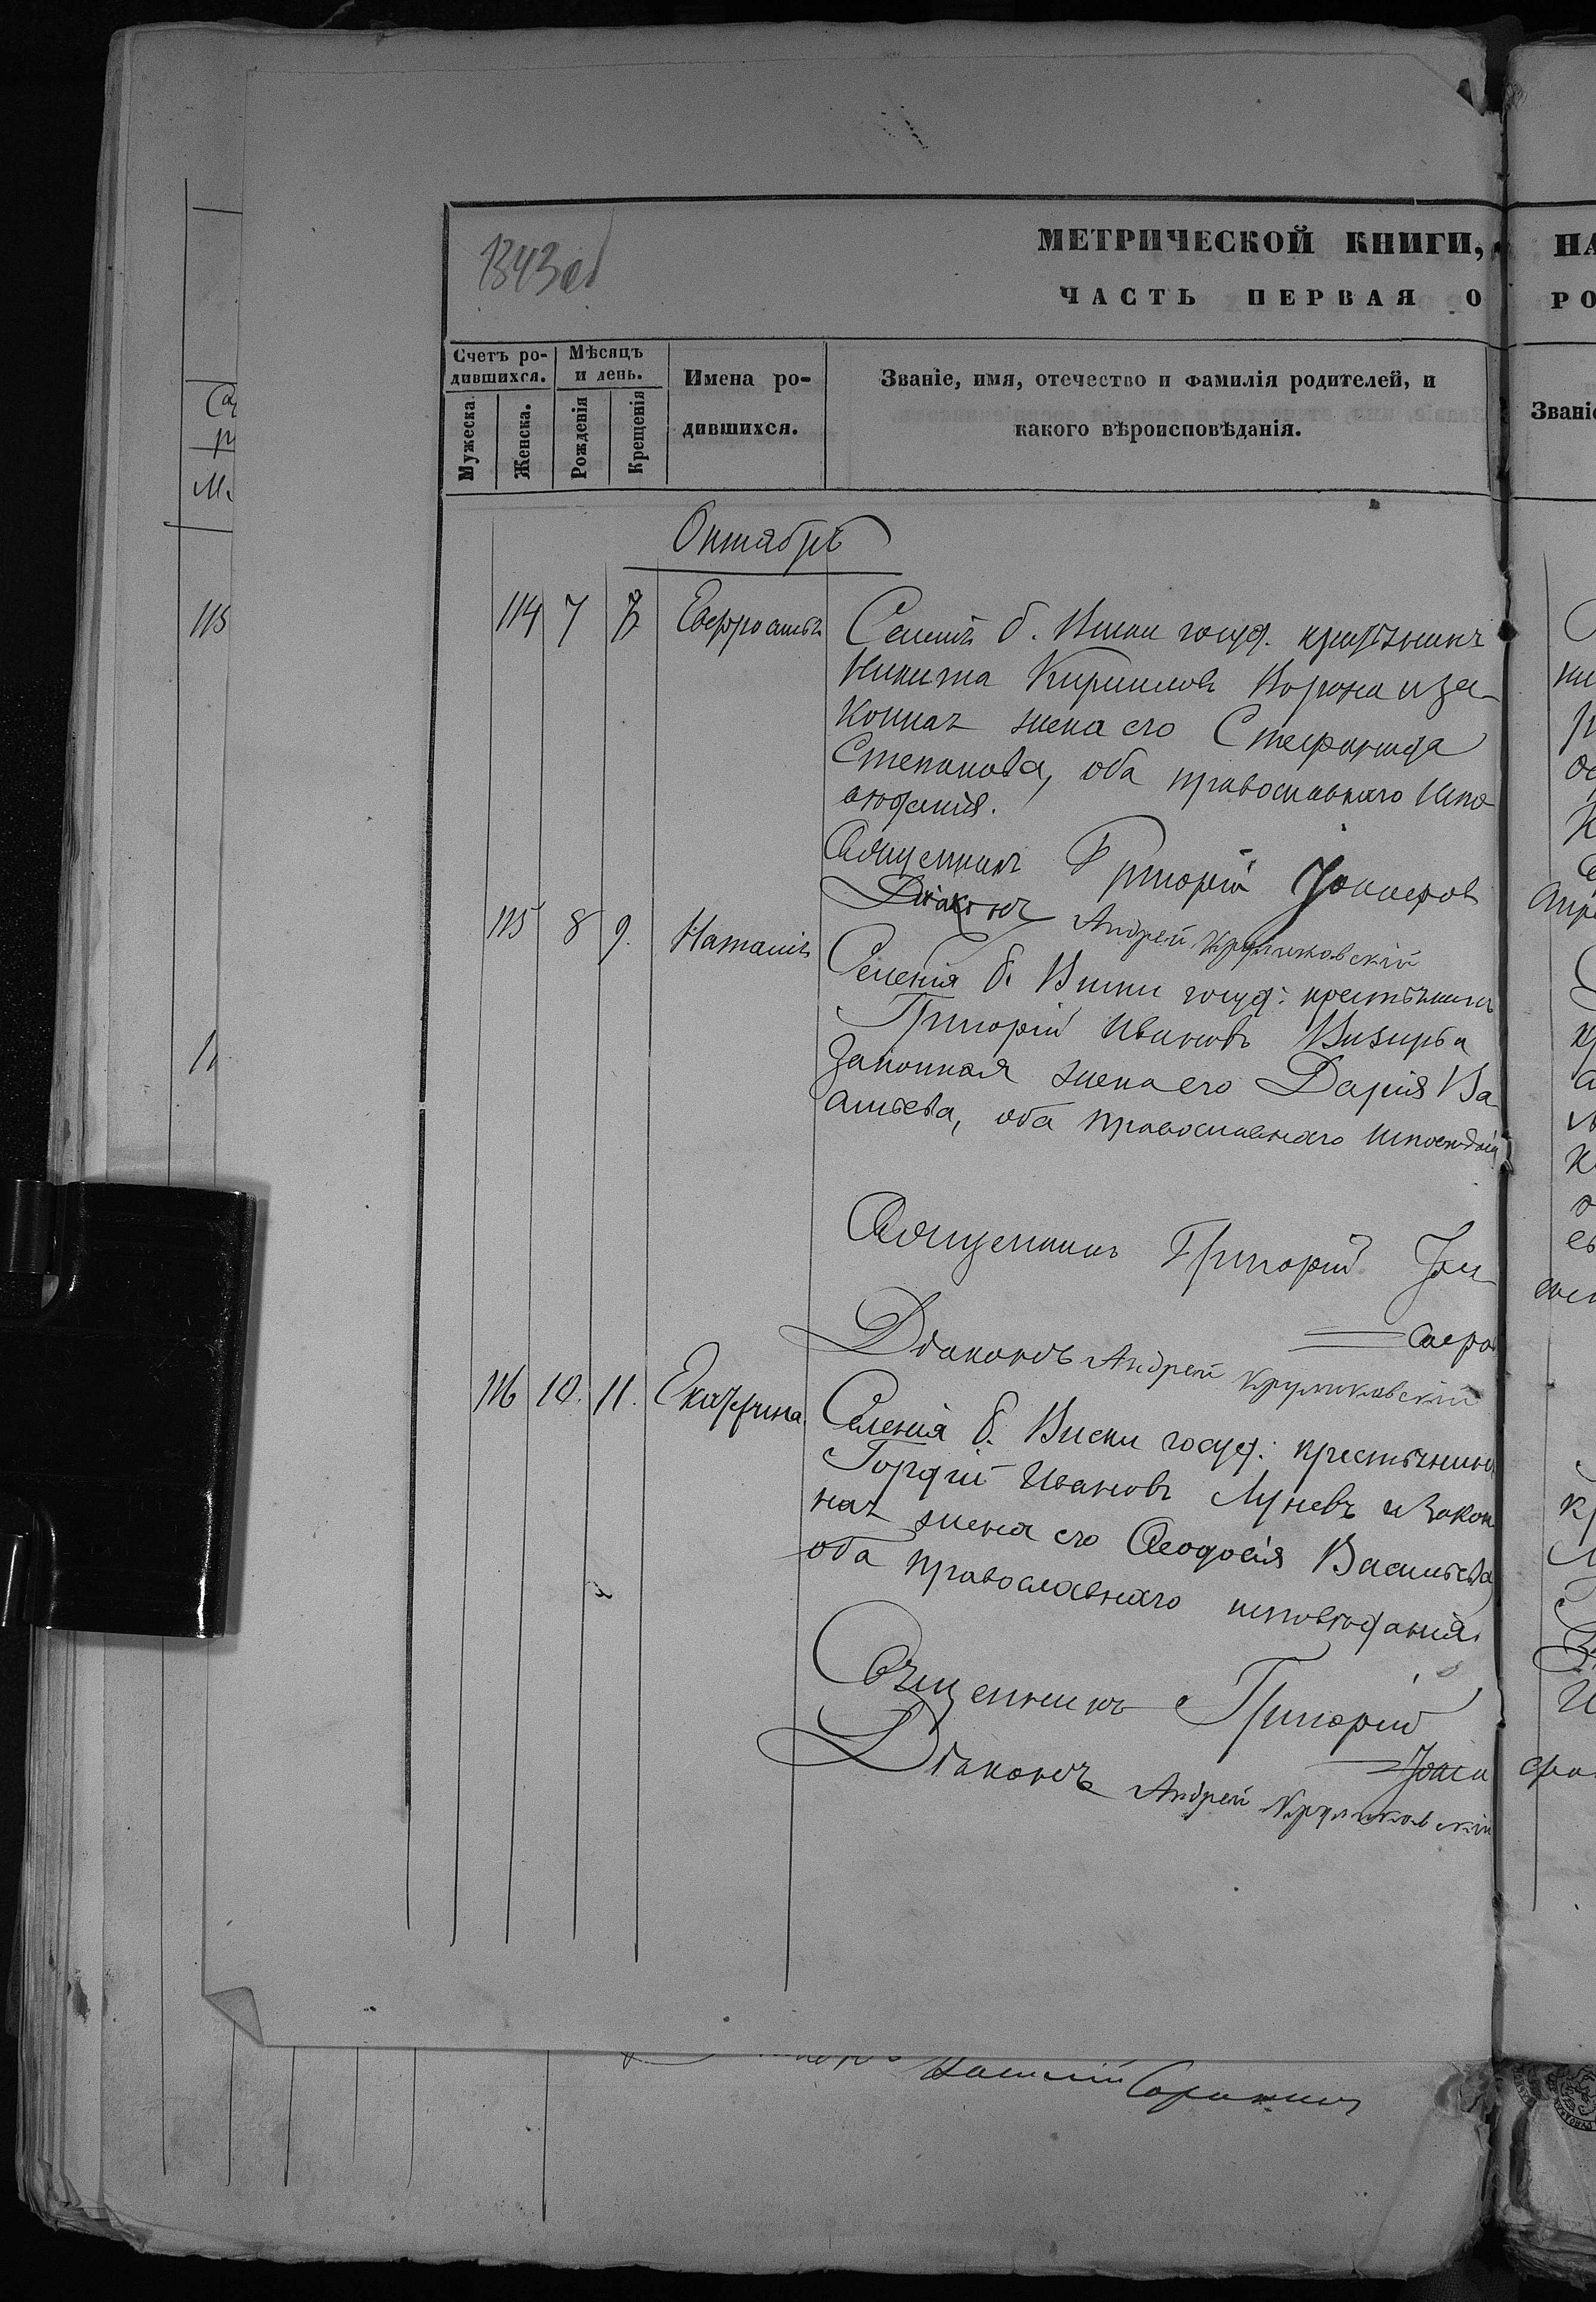 1343 об
МЕТРИЧЕСКОЙ КНИГИ, НА
ЧАСТЬ ПЕРВАЯ О РО
Счетъ ро-
дившихся.
Мѣсяцъ
и день.
Мужеска.
Женска.
Рожденія
Крещенія
Имена ро-
дившихся.
Званіе, имя, отечество и фамилія родителей, и
какого вѣроисповѣданія.
Званіе
Октябрь
114 7 8 Евфросинія Селенія б. Виски госуд. крестьянинъ
Никита Кириллов Ворона и за-
конная жена его Стефанида
Степанова, оба православнаго испо-
вѣданія.
Священникъ Григорій
Діаконъ Андрей Круликовскій
115 8 9. Наталія Селенія б. Виски госуд: крестьянинъ
Григорій Ивановъ
Законная жена его Дарія Ва-
сильева, оба православнаго исповѣданія
Священникъ Григорій
Діаконъ Андрей Круликовскій
116 10. 11. Екатерина. Селенія б. Виски госуд: крестьянинъ
Гордій Ивановъ Луневъ и Закон
ная жена его Ѳеодосія Васильева
оба православнаго исповѣданія.
Священникъ Григорій
Діаконъ Андрей Круликовскій
115
Василій